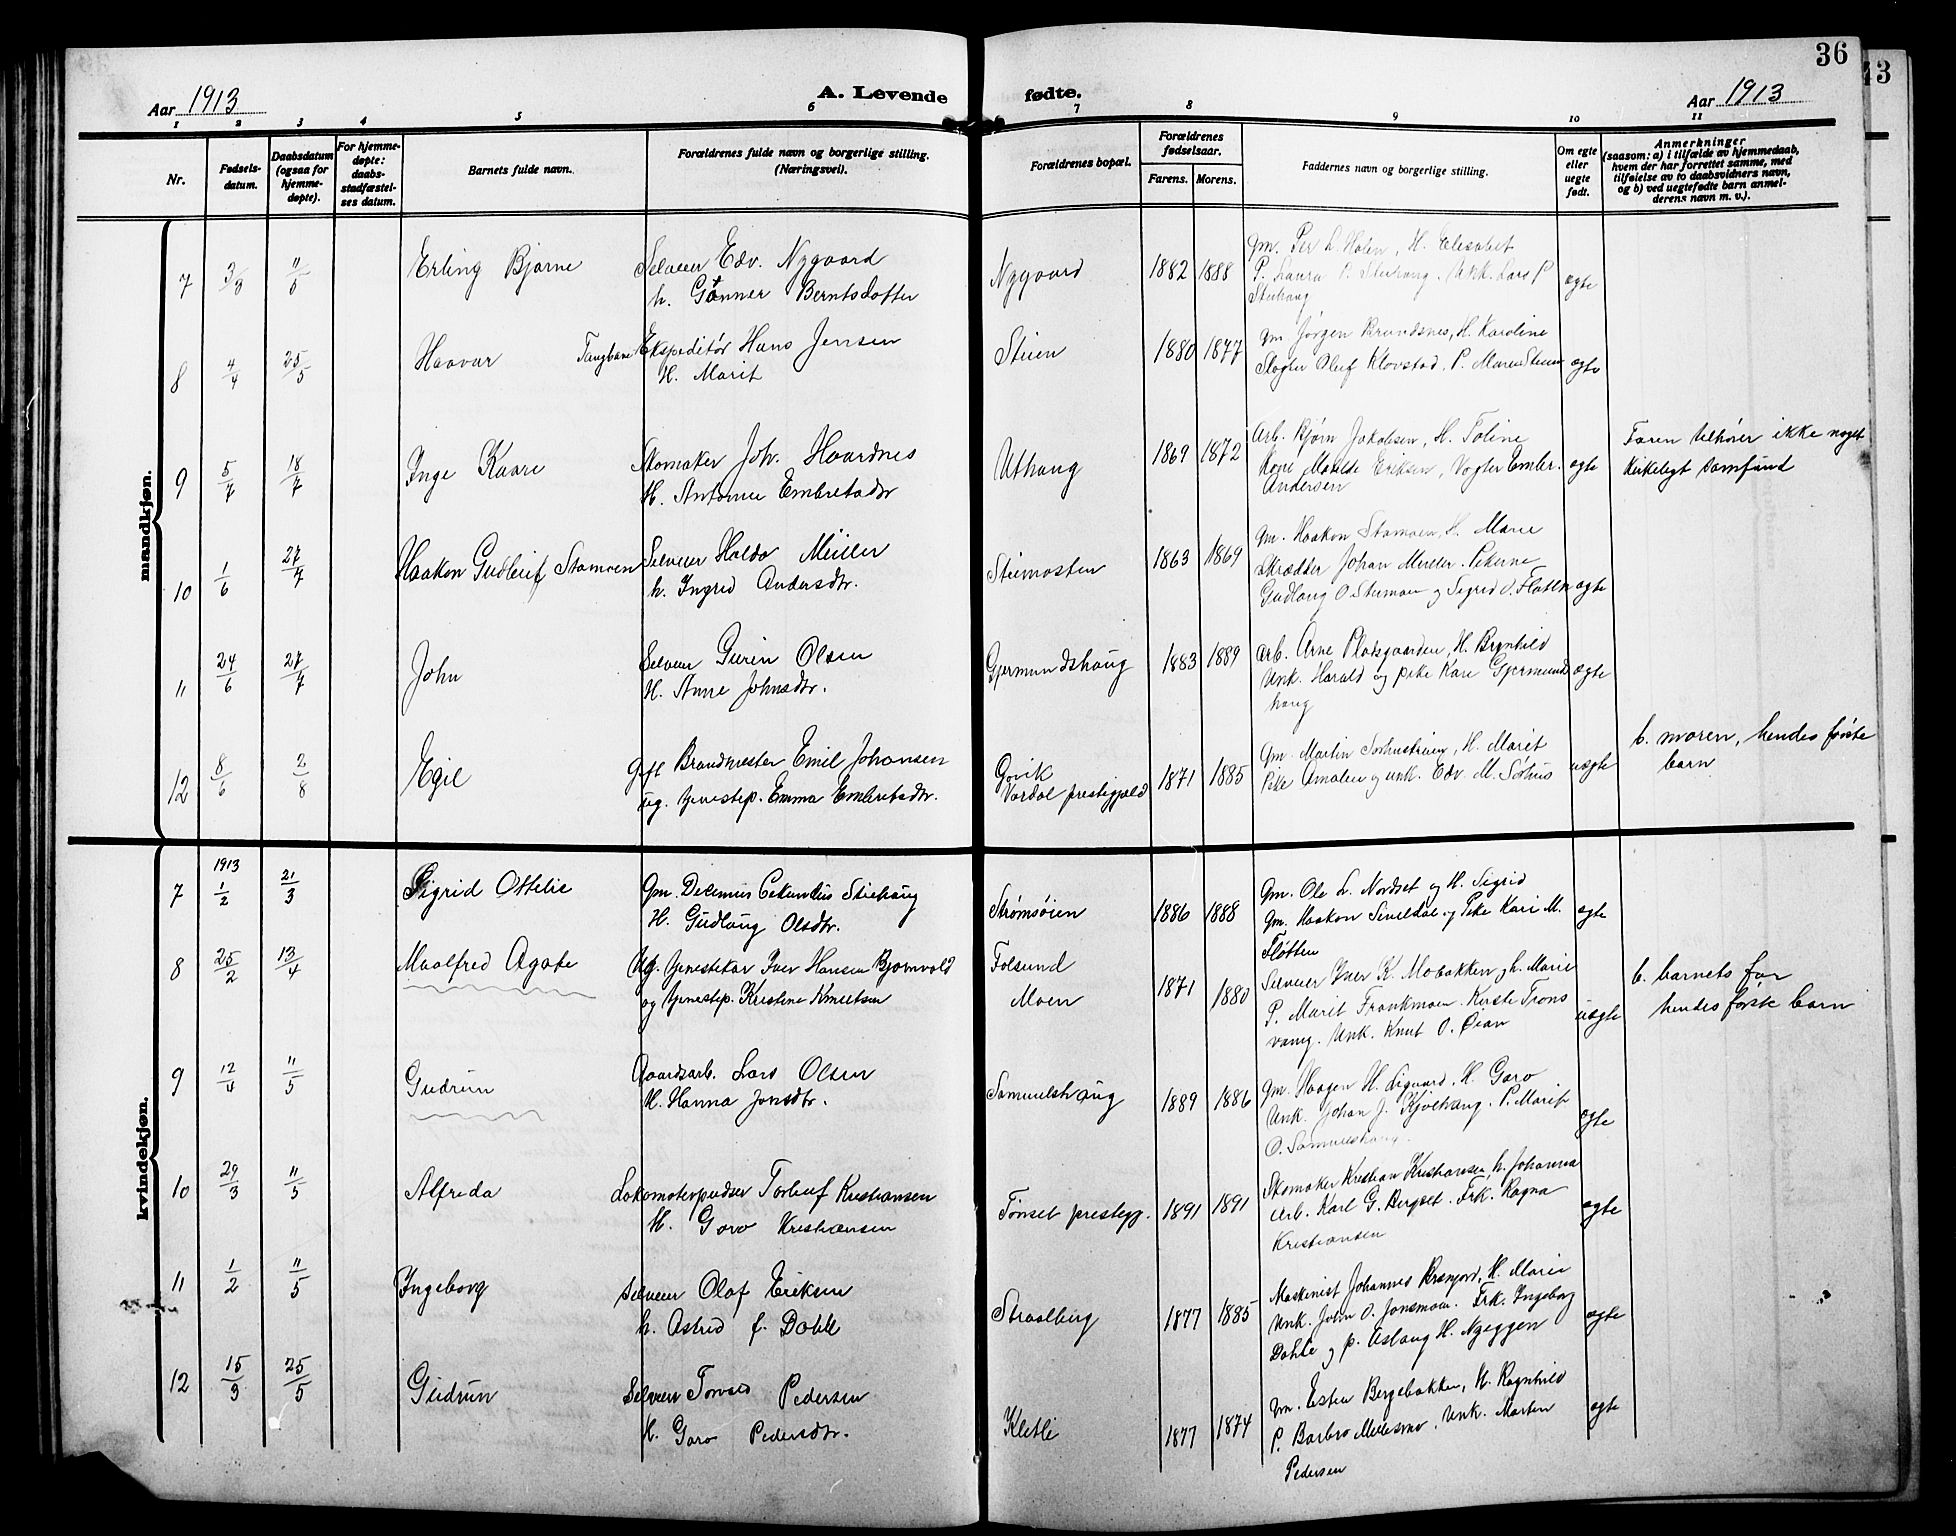 36
43
Aar 1913
A. Levende fødte.
Aar 1913
1 2 3 4 5 6 7 8 9 10 11
Nr.
Fødsels-
datum.
Daabsdatum
(ogsaa for
hjemme-
døpte).
For hjemme-
døpte:
daabs-
stadfæstel-
ses datum.
Barnets fulde navn.
Forældrenes fulde navn og borgerlige stilling.
(Næringsvei).
Forældrenes bopæl.
Forældrenes
fødselsaar.
Farens. Morens.
Faddernes navn og borgerlige stilling.
Om egte
eller
uegte
født.
Anmerkninger
(saasom: a) i tilfælde av hjemmedaab,
hvem der har forrettet samme, med
tilføielse av to daabsvidners navn,
og b) ved uegtefødte barn anmel-
derens navn m. v.).
mandkjøn.
7 3/8 11/5 Erling Bjarne
Selveier Edv. Nygaard
h. Gunner Berntsdotter
Nygaard 1882 1888
Gm. Per L. Holen, H. Elisabet
P. Laura P. Stuhaug. Unk. Lars P
Stuhaug
egte
8 4/4 25/5 Haavar Tangbane
Ekspeditør Hans Jensen
H. Marit
Stuen 1880 1877
Gm Jørgen Brundsnes, H. Karoline
Oluf Klovstad, P. Maren Stuen
egte
9 5/7 18/7 Inge Kaare
Skomaker Joh. Haardnes
H. Antonie Embretsdtr
Uthaug 1869 1872
Arb. Bjørn Jakobsen, H. Toline
Kone Matilde Eriksen, Vogter Embr.
Andersen
egte
Faren tilhører ikke noget
kirkeligt samfund
10 1/6 27/7 Haakon Gudleif Stamoen
Selveier Haldo Meiller
h. Ingrid Andersdtr.
Steimosten 1863 1869
Gm. Haakon Stamoen, H. Marie
Skrædder Johan Meiller. Pikerne
Gudlaug O. Steimoen og Sigrid O. Flatten
egte
11 24/6 27/7 John
Selveier Gurin Olsen
H. Anne Johnsdtr.
Gjermundshaug 1883 1889
Arb. Arne Pladsgaarden, H. Brynhild
Unk. Harald og pike Kari Gjermund
haug
egte
12 8/6 2/8 Egil
Gift Brandmester Emil Johansen
ug. tjenestep. Emma Embretsdtr.
Gjøvik
Vardal prestegjæld 1871 1885
Gm. Martin, H. Marit
Pike Amalie og unk. Edv. M. Sørhus
uegte
b. moren, hendes første
barn
kvindekjøn.
1913
7 1/2 21/3 Sigrid Ottelie
Gm. Decemius Cekundus Stiehaug
H. Gudlaug Olsdtr.
Strømsøien 1886 1888
Gm. Ole L. Nordset og H. Sigrid
Gm. Haakon Siveldal og Pike Kari M.
Fløtten
egte
8 25/2 13/4 Maalfred Agate
Ug. tjenestekar Iver Hansen Bjornvold
og tjenestep. Kristine Knutsen
Folsund
Moen 1871 1880
Selveier Iver K. Mobakken, h. Marie
P. Marit Frankmoen. Kirsti Trons
vang. Unk. Knut O. Øian
uegte
b. barnets far
hendes første barn
9 12/4 11/5 Gudrun
Gaardsarb. Lars Olsen
H. Hanna Jonsdtr.
Samuelshaug 1889 1886
Gm. Haagen H. Ligaard. H. Goro
Unk. Johan J. Kjølhaug. P. Marit
O. Samuelshaug.
egte
10 29/3 11/5 Alfreda
Lokomotivpudser Torleif Kristiansen
H. Goro Kristiansen
Tønset prestegj. 1891 1891
Skomaker Kristian Kristiansen, h. Johanna
Arb. Karl G. Bergset. Frk. Ragna
Kristiansen
egte
11 1/2 11/5 Ingeborg
Selveier Olaf Eriksen
h. Astrid f. Dahle
Straalberg 1877 1885
Maskinist Johannes, H. Marie
Unk. John O. Jonsmoen. Frk. Ingeborg
Dahle og p. Aslaug H. Nyeggen
egte
12 15/3 25/5 Gudrun
Selveier Tonses Pedersen
H. Goro Pedersdtr.
Kletli 1877 1874
Gm. Esten Bergebakken, H. Ragnhild
P. Barbro Mellesmo. Unk. Morten
Pedersen
egte